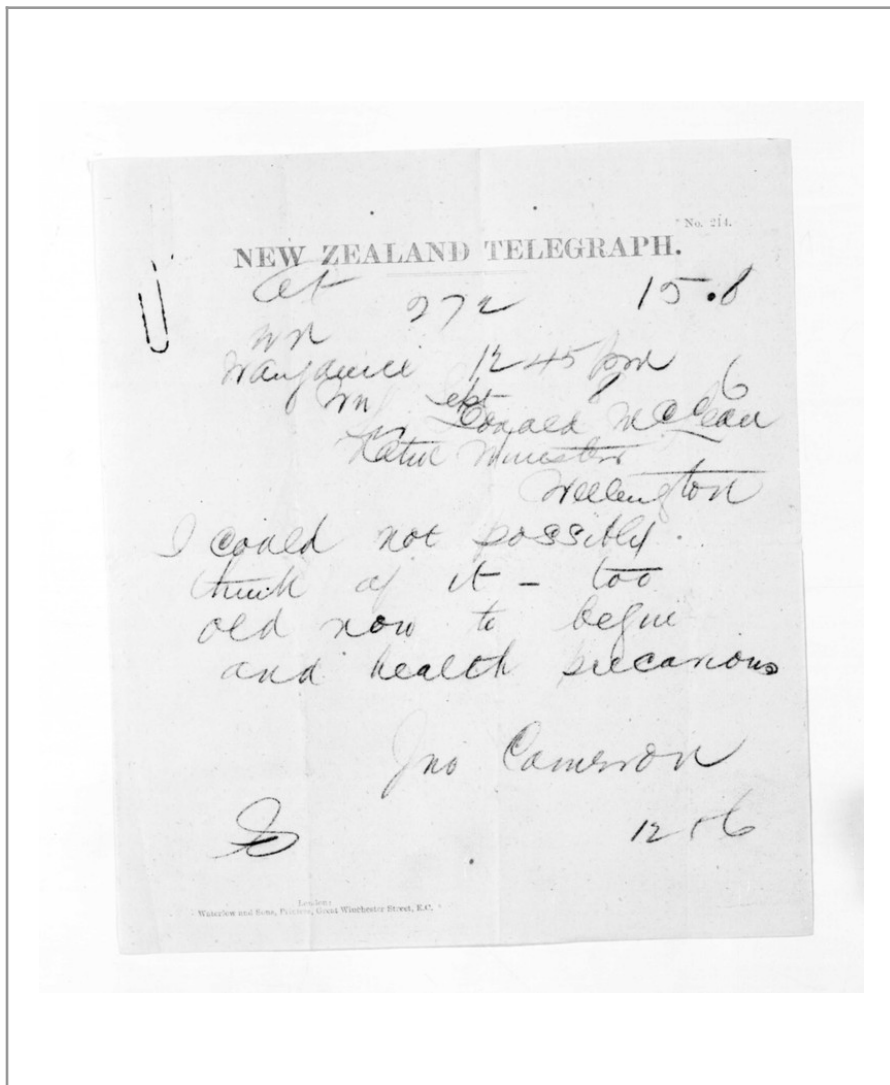 No. 214.
NEW ZEALAND TELEGRAPH.
At 272 15.8
Wn
Wanganui 12 45 pm 6
Donald McLean
Native Minister
Wellington
I could not possibly
think of it - too
old now to begin
and health precarious
Jno Cameron
12 56
London:
Waterlow and Sons, Printers, Great Winchester Street, E.C.